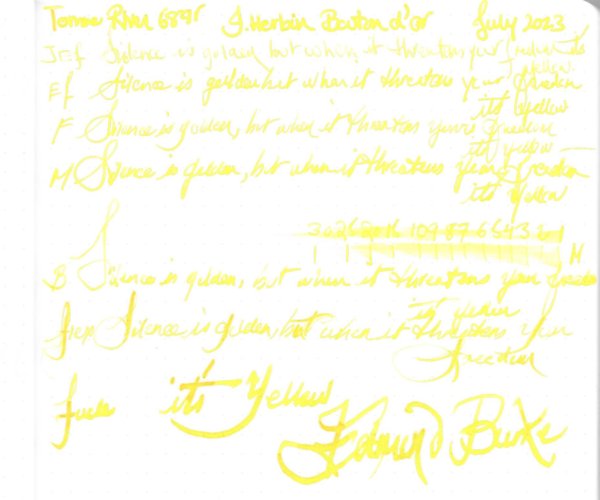 Tomoe River 68gr J. Herbin Bouton d'or July 2023
Silence is golden, but when it threatens your freedom it's
yellow
EF Silence is golden but when it threatens your freedom
it's yellow
F Silence is golden, but when it threatens your freedom
it's yellow
M Silence is golden, but when it threatens your freedom
it's yellow
10 9 8 7 6 5 4 3 2 1
M
B Silence is golden, but when it threatens your freedom
it's yellow
Silence is golden, but when it threatens your
freedom
it's Yellow
Edmund Burke